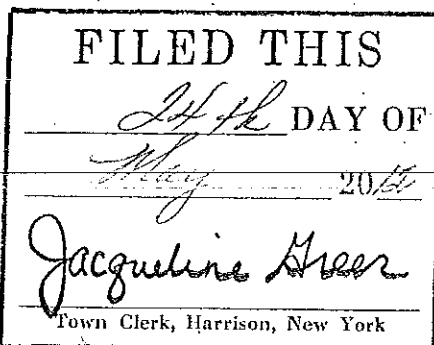 FILED THIS
24th DAY OF
May 20
Jacqueline Greer
Town Clerk, Harrison, New York